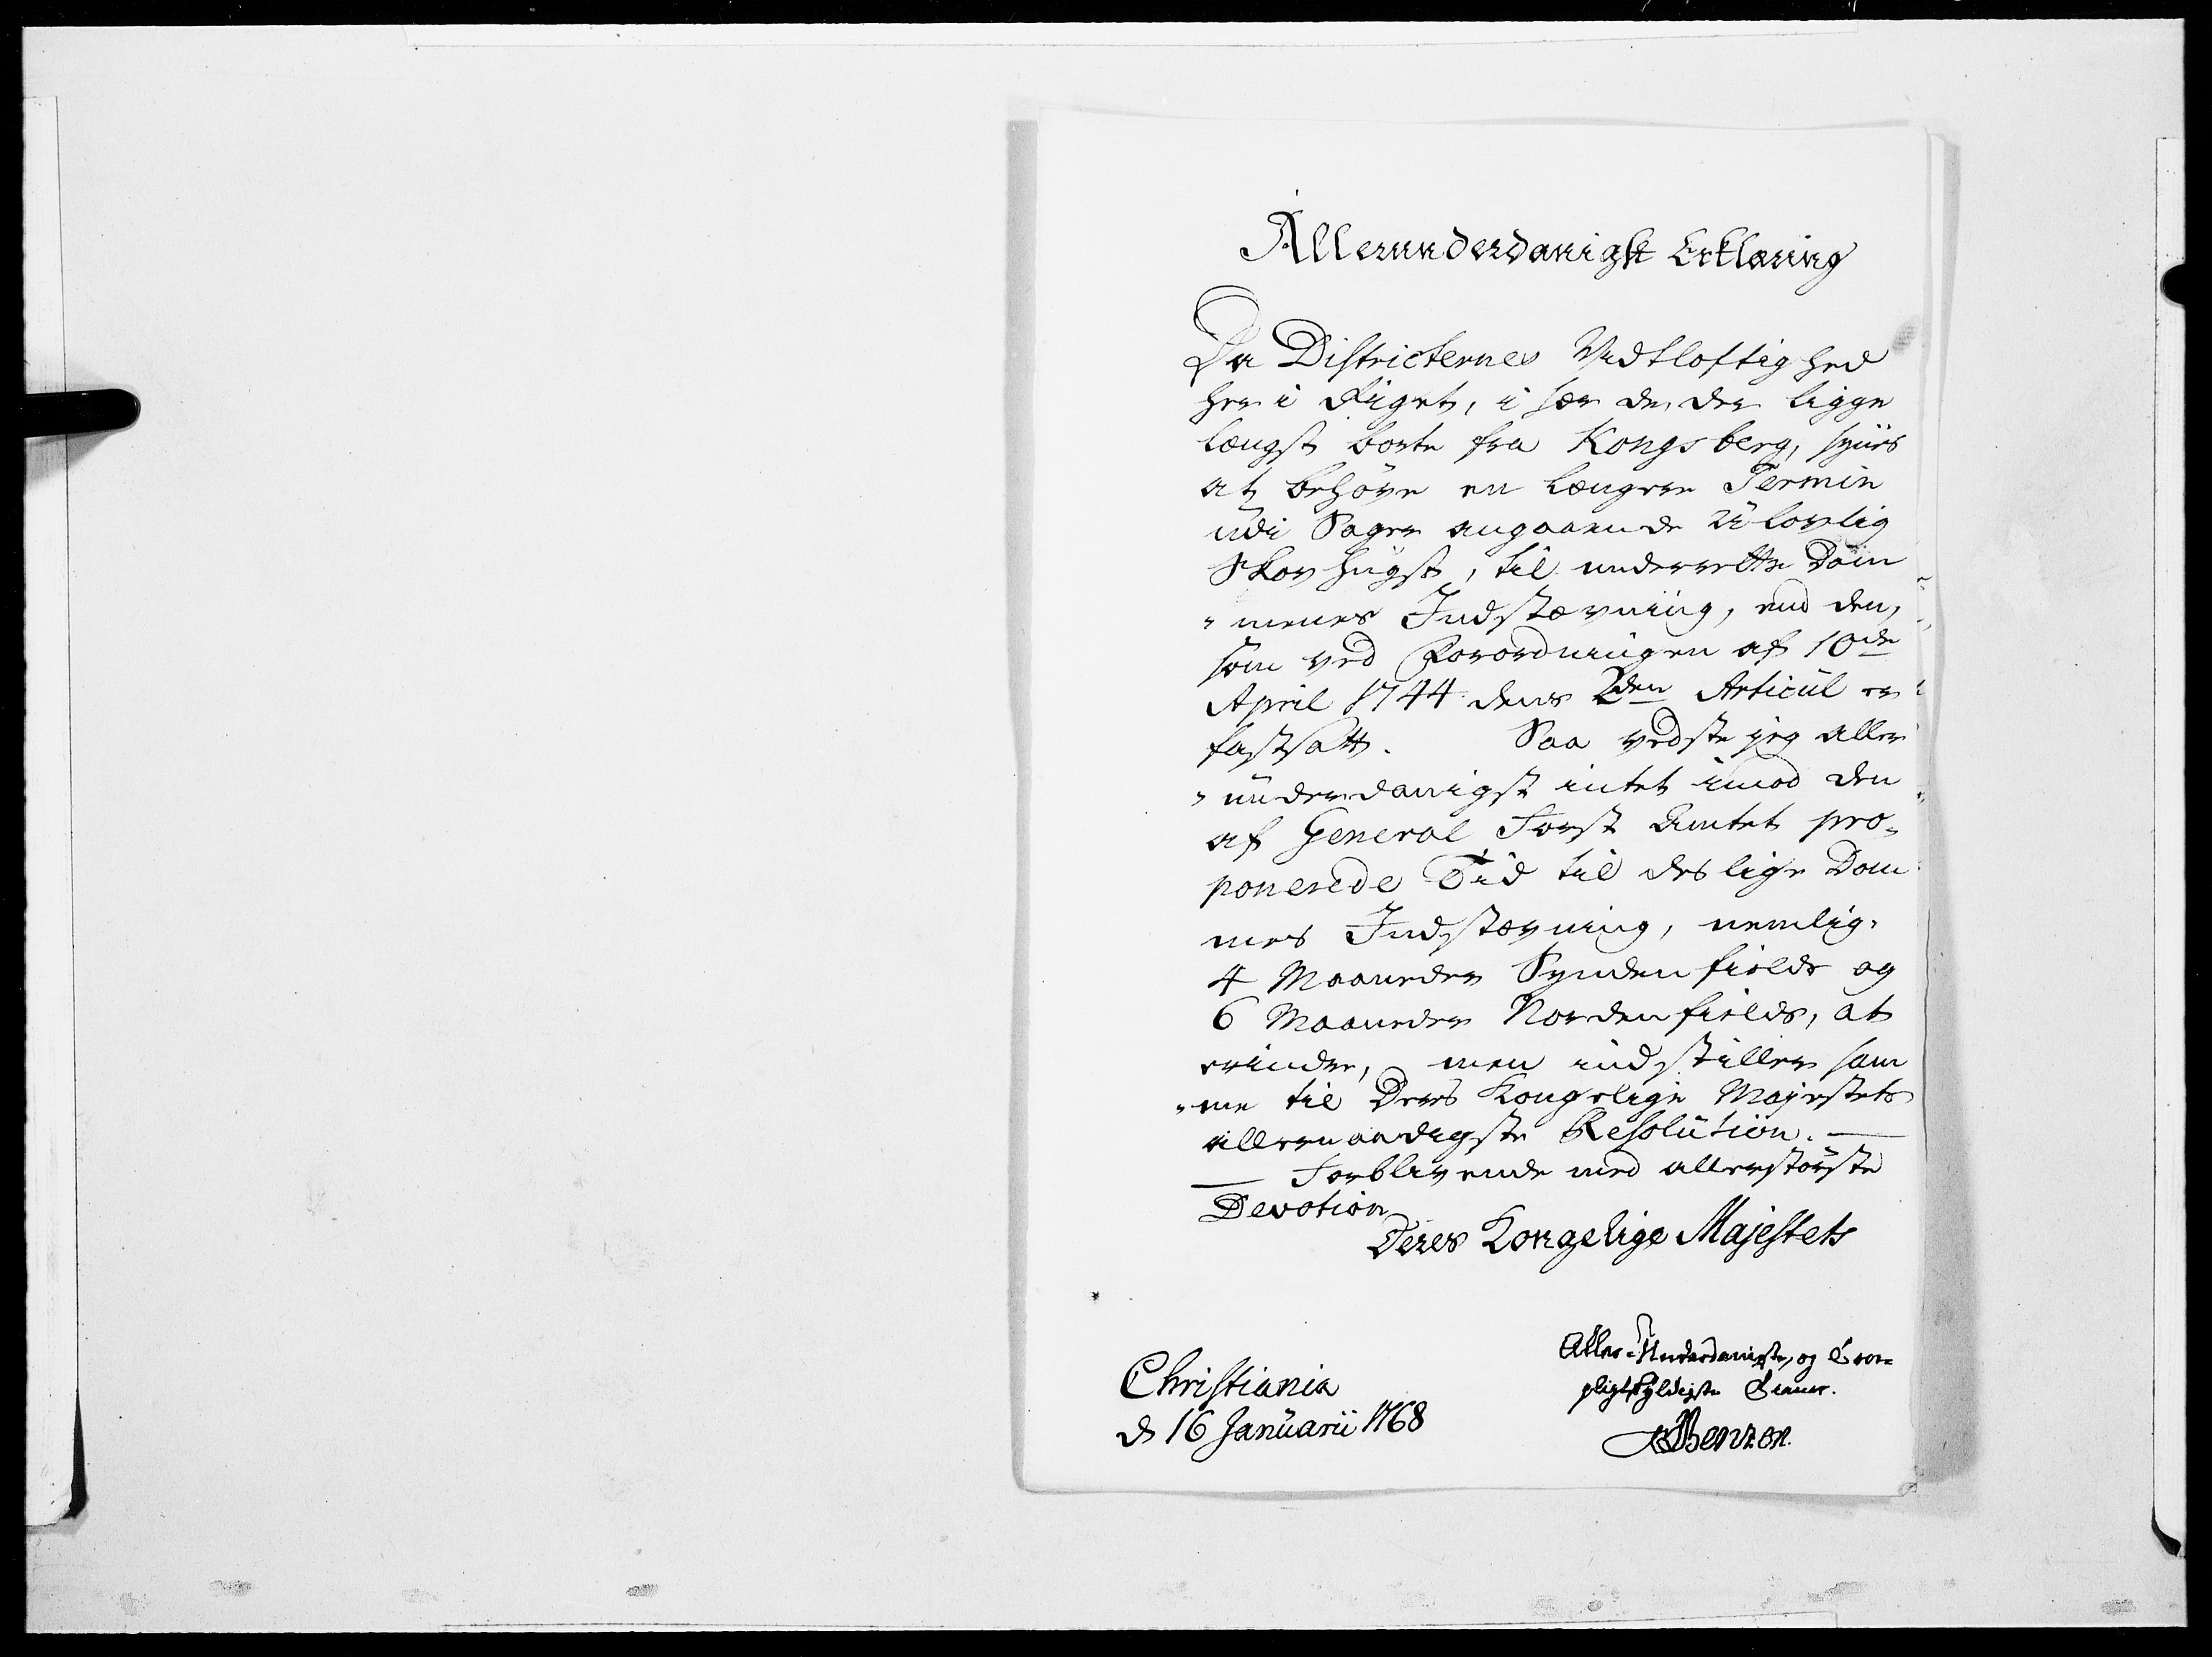 Allerunderdanigst Erklæring
Da Districternes Vidtløftighed
her i Riget, i sær de, der ligge
længst borte fra Kongsberg, synes
at behøve en længere Termin
udi Sager angaaende Ulovlig
Skovhugst, til underrette Dom
-menes Indstævning, end den,
som ved Forordningen af 10de
April 1744 dens 2den Articul er
fastsatt. Saa vedste jeg aller
-underdanigst intet imod den
af General Forst Amtet pro-
ponerede Tid til deslige Dom
mes Indstævning, nemlig.
4 Maaneder Syndenfields og
6 Maaneder Nordenfields, at
erindre, men indstiller sam
-me til Deres Kongelige Majestets
allernaadigste Resolution. —
— Forblivende med allerstørste
Devotion
Deres Kongelige Majestets
Christiania
d 16 Januarii 1768
Aller-Underdanigste, og Troe-
pligtskyldigste Tiener.
Benzon.